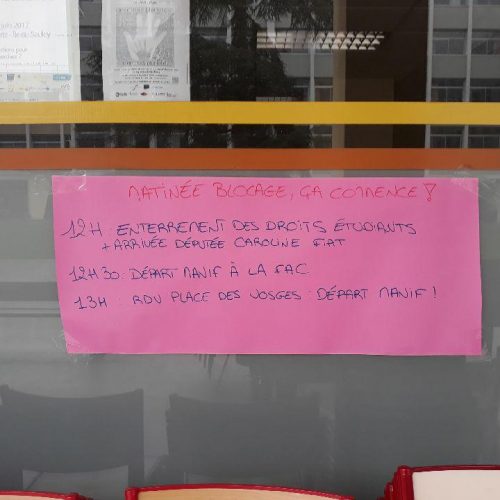 juin 2017
MATINÉE BLOCAGE, ÇA COMMENCE !
12H : ENTERREMENT DES DROITS ÉTUDIANTS
+ ARRIVÉE DÉPUTÉE CAROLINE FIAT
12H30 : DÉPART MANIF À LA FAC
13H : RDV PLACE DES VOSGES : DÉPART MANIF !